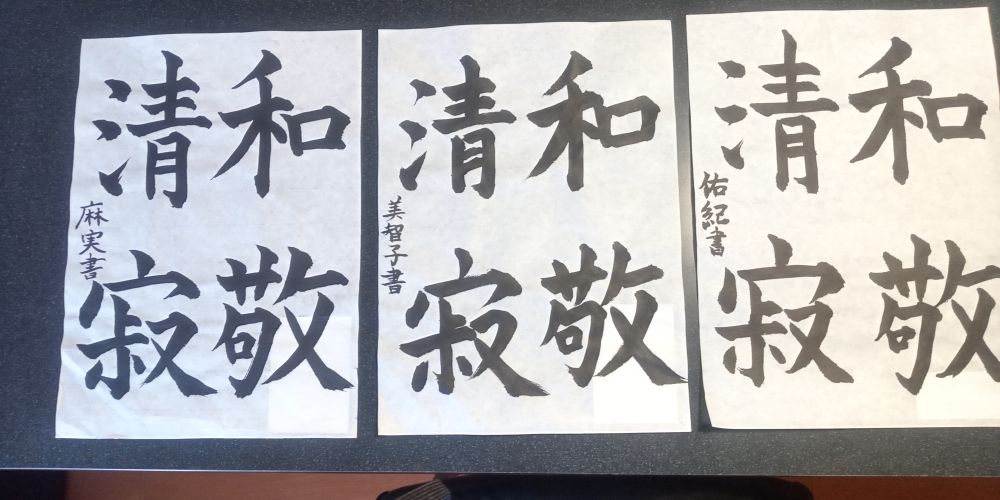 和敬
清寂
麻実書
和敬
清寂
美智子書
和敬
清寂
佑紀書